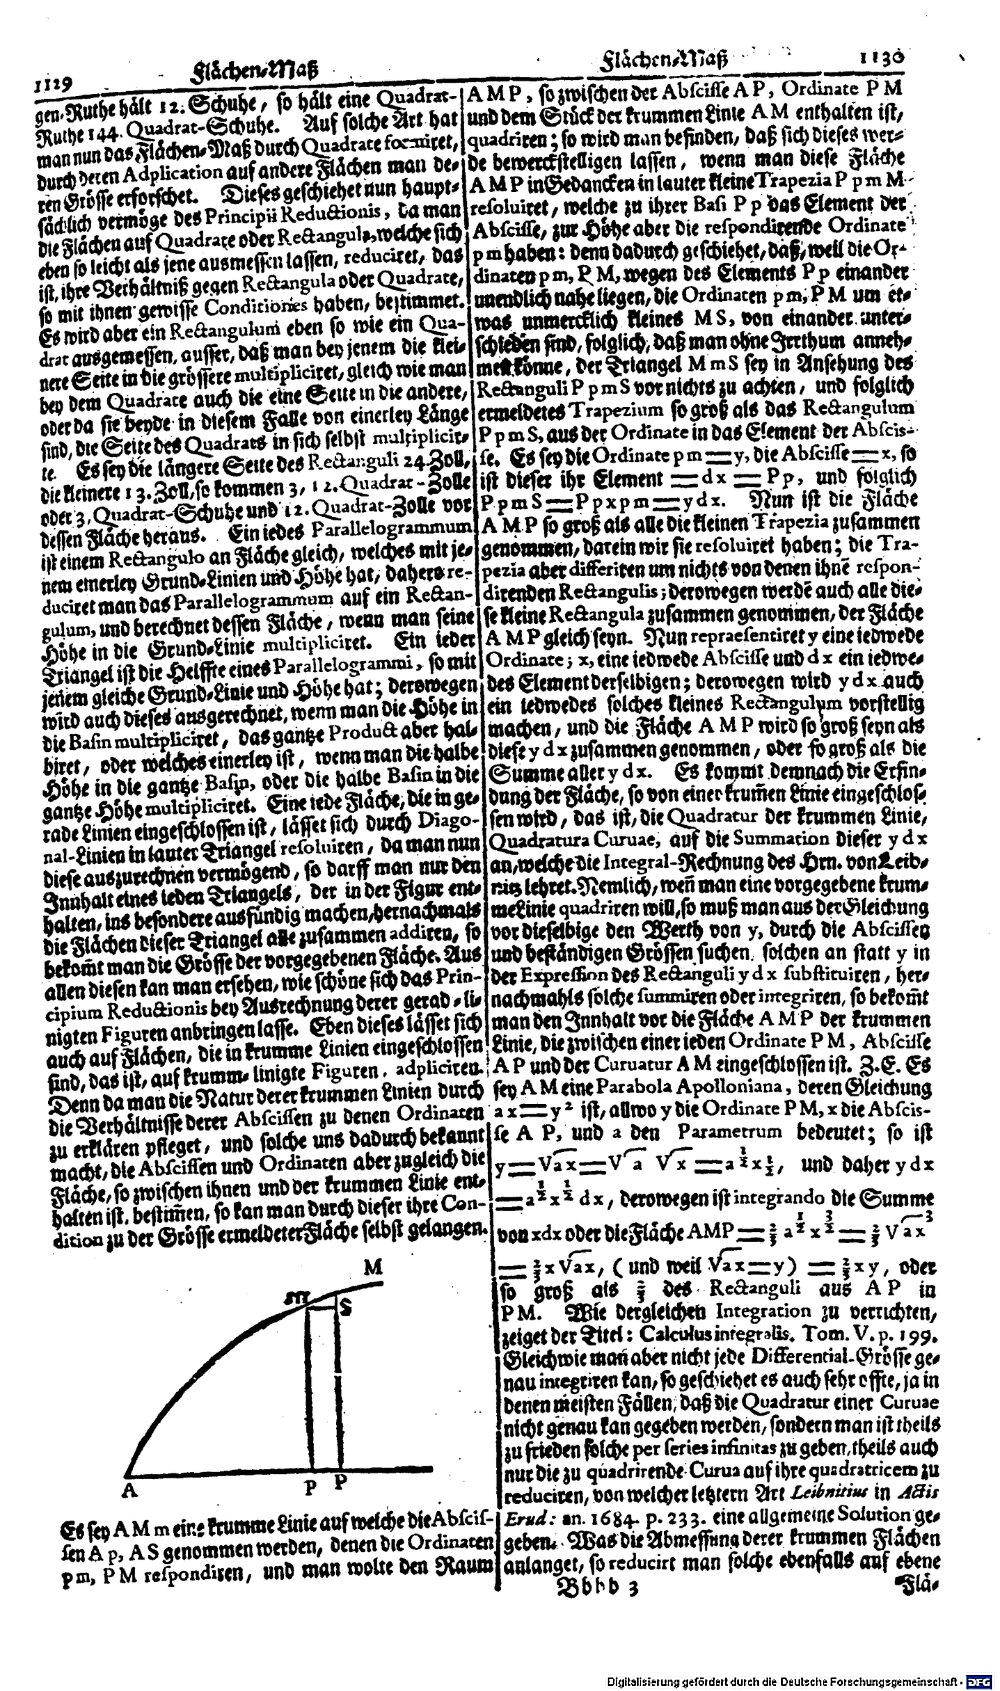 1129
Flächen-Maß
gen-Ruthe hält 12. Schuhe, so hält eine Quadrat-
Ruthe 144. Quadrat-Schuhe. Auf solche Art hat
man nun das Flächen-Maß durch Quadrate formiret,
durch deren Adplication auf andere Flächen man de-
ren Grösse erforschet. Dieses geschiehet nun haupt-
sächlich vermöge des Principii Reductionis, da man
die Flächen auf Quadrate oder Rectangula, welche sich
eben so leicht als jene ausmessen lassen, reduciret, das
ist, ihre Verhältniß gegen Rectangula oder Quadrate,
so mit ihnen gewisse Conditiones haben, bestimmet.
Es wird aber ein Rectangulum eben so wie ein Qua-
drat ausgemessen, ausser, daß man bey jenem die klei-
nere Seite in die grössere multipliciret, gleich wie man
bey dem Quadrate auch die eine Seite in die andere,
oder da sie beyde in diesem Falle von einerley Länge
sind, die Seite des Quadrats in sich selbst multiplicir-
te. Es sey die längere Seite des Rectanguli 24. Zoll,
die kleinere 13. Zoll, so kommen 3, 12. Quadrat-Zolle
oder 3, Quadrat-Schuhe und 12. Quadrat-Zolle vor
dessen Fläche heraus. Ein iedes Parallelogrammum
ist einem Rectangulo an Fläche gleich, welches mit je-
nem einerley Grund-Linien und Höhe hat, dahero re-
duciret man das Parallelogrammum auf ein Rectan-
gulum, und berechnet dessen Fläche, wenn man seine
Höhe in die Grund-Linie multipliciret. Ein ieder
Triangel ist die Helffte eines Parallelogrammi, so mit
jenem gleiche Grund-Linie und Höhe hat; derowegen
wird auch dieses ausgerechnet, wenn man die Höhe in
die Basin multipliciret, das gantze Product aber hal-
biret, oder welches einerley ist, wenn man die halbe
Höhe in die gantze Basin, oder die halbe Basin in die
gantze Höhe multipliciret. Eine iede Fläche, die in ge-
rade Linien eingeschlossen ist, lässet sich durch Diago-
nal-Linien in lauter Triangel resoluiren, da man nun
diese auszurechnen vermögend, so darff man nur den
Innhalt eines ieden Triangels, der in der Figur ent-
halten, ins besondere ausfündig machen, hernachmals
die Flächen dieser Triangel alle zusammen addiren, so
bekom̃t man die Grösse der vorgegebenen Fläche. Aus
allen diesen kan man ersehen, wie schöne sich das Prin-
cipium Reductionis bey Ausrechnung derer gerad-li-
nigten Figuren anbringen lasse. Eben dieses lässet sich
auch auf Flächen, die in krumme Linien eingeschlossen
sind, das ist, auf krumm-linigte Figuren, adpliciren.
Denn da man die Natur derer krummen Linien durch
die Verhältnisse derer Abscissen zu denen Ordinaten
zu erklären pfleget, und solche uns dadurch bekannt
macht, die Abscissen und Ordinaten aber zugleich die
Fläche, so zwischen ihnen und der krummen Linie ent-
halten ist, bestim̃en, so kan man durch dieser ihre Con-
dition zu der Grösse ermeldeter Fläche selbst gelangen.
M
m
S
A
P
P
Es sey A M m eine krumme Linie auf welche die Abscis-
sen A p, AS genommen werden, denen die Ordinaten
pm, P M respondiren, und man wolte den Raum
Flächen-Maß
1130
A M P, so zwischen der Abscisse A P, Ordinate P M
und dem Stück der krummen Linie AM enthalten ist,
quadriren; so wird man befinden, daß sich dieses wer-
de bewerckstelligen lassen, wenn man diese Fläche
A M P in Gedancken in lauter kleine Trapezia P p m M
resoluiret, welche zu ihrer Basi P p das Element der
Abscisse, zur Höhe aber die respondirende Ordinate
p m haben: denn dadurch geschiehet, daß, weil die Or-
dinaten p m, P M, wegen des Elements P p einander
unendlich nahe liegen, die Ordinaten p m, P M um et-
was unmercklich kleines M S, von einander unter-
schieden sind, folglich, daß man ohne Irrthum anneh-
men könne, der Triangel M m S sey in Ansehung des
Rectanguli P p m S vor nichts zu achten, und folglich
ermeldetes Trapezium so groß als das Rectangulum
P p m S, aus der Ordinate in das Element der Abscis-
se. Es sey die Ordinate p m = y, die Abscisse = x, so
ist dieser ihr Element = dx = P p, und folglich
P p m S = P p x p m = y dx. Nun ist die Fläche
A M P so groß als alle die kleinen Trapezia zusammen
genommen, darein wir sie resoluiret haben; die Tra-
pezia aber differiren um nichts von denen ihnẽ respon-
direnden Rectangulis; derowegen werdẽ auch alle die-
se kleine Rectangula zusammen genommen, der Fläche
A M P gleich seyn. Nun repraesentiret y eine iedwede
Ordinate; x, eine iedwede Abscisse und d x ein iedwe-
des Element derselbigen; derowegen wird y d x auch
ein iedwedes solches kleines Rectangulum vorstellig
machen, und die Fläche A M P wird so groß seyn als
diese y d x zusammen genommen, oder so groß als die
Summe aller y d x. Es kommt demnach die Erfin-
dung der Fläche, so von einer krum̃en Linie eingeschlos-
sen wird, das ist, die Quadratur der krummen Linie,
Quadratura Curuae, auf die Summation dieser y d x
an, welche die Integral-Rechnung des Hrn. von Leib-
nitz lehret. Nemlich, weñ man eine vorgegebene krum-
me Linie quadriren will, so muß man aus der Gleichung
vor dieselbige den Werth von y, durch die Abscissen
und beständigen Grössen suchen, solchen an statt y in
der Expression des Rectanguli y d x substituiren, her-
nachmahls solche summiren oder integriren, so bekom̃t
man den Innhalt vor die Fläche A M P der krummen
Linie, die zwischen einer ieden Ordinate P M, Abscisse
A P und der Curuatur A M eingeschlossen ist. Z. E. Es
sey A M eine Parabola Apolloniana, deren Gleichung
a x = y² ist, allwo y die Ordinate PM, x die Abscis-
se A P, und a den Parametrum bedeutet; so ist
y = √ax = √a √x = a½x½, und daher y d x
= a½x½ dx, derowegen ist integrando die Summe
von xdx oder die Fläche AMP = ⅔ a½ x3/2 = ⅔ √ax³
= ⅔ x √ax, (und weil √ax = y) = ⅔ x y, oder
so groß als ⅔ des Rectanguli aus A P in
P M. Wie dergleichen Integration zu verrichten,
zeiget der Titel: Calculus integralis. Tom. V. p. 199.
Gleichwie man aber nicht jede Differential-Grösse ge-
nau integriren kan, so geschiehet es auch sehr offte, ja in
denen meisten Fällen, daß die Quadratur einer Curuae
nicht genau kan gegeben werden, sondern man ist theils
zu frieden solche per series infinitas zu geben, theils auch
nur die zu quadrirende Curua auf ihre quadratricem zu
reduciren, von welcher letztern Art Leibnitius in Actis
Erud: an. 1684. p. 233. eine allgemeine Solution ge-
geben. Was die Abmessung derer krummen Flächen
anlanget, so reducirt man solche ebenfalls auf ebene
Bbbb 3
Flä-
Digitalisierung gefördert durch die Deutsche Forschungsgemeinschaft - DFG